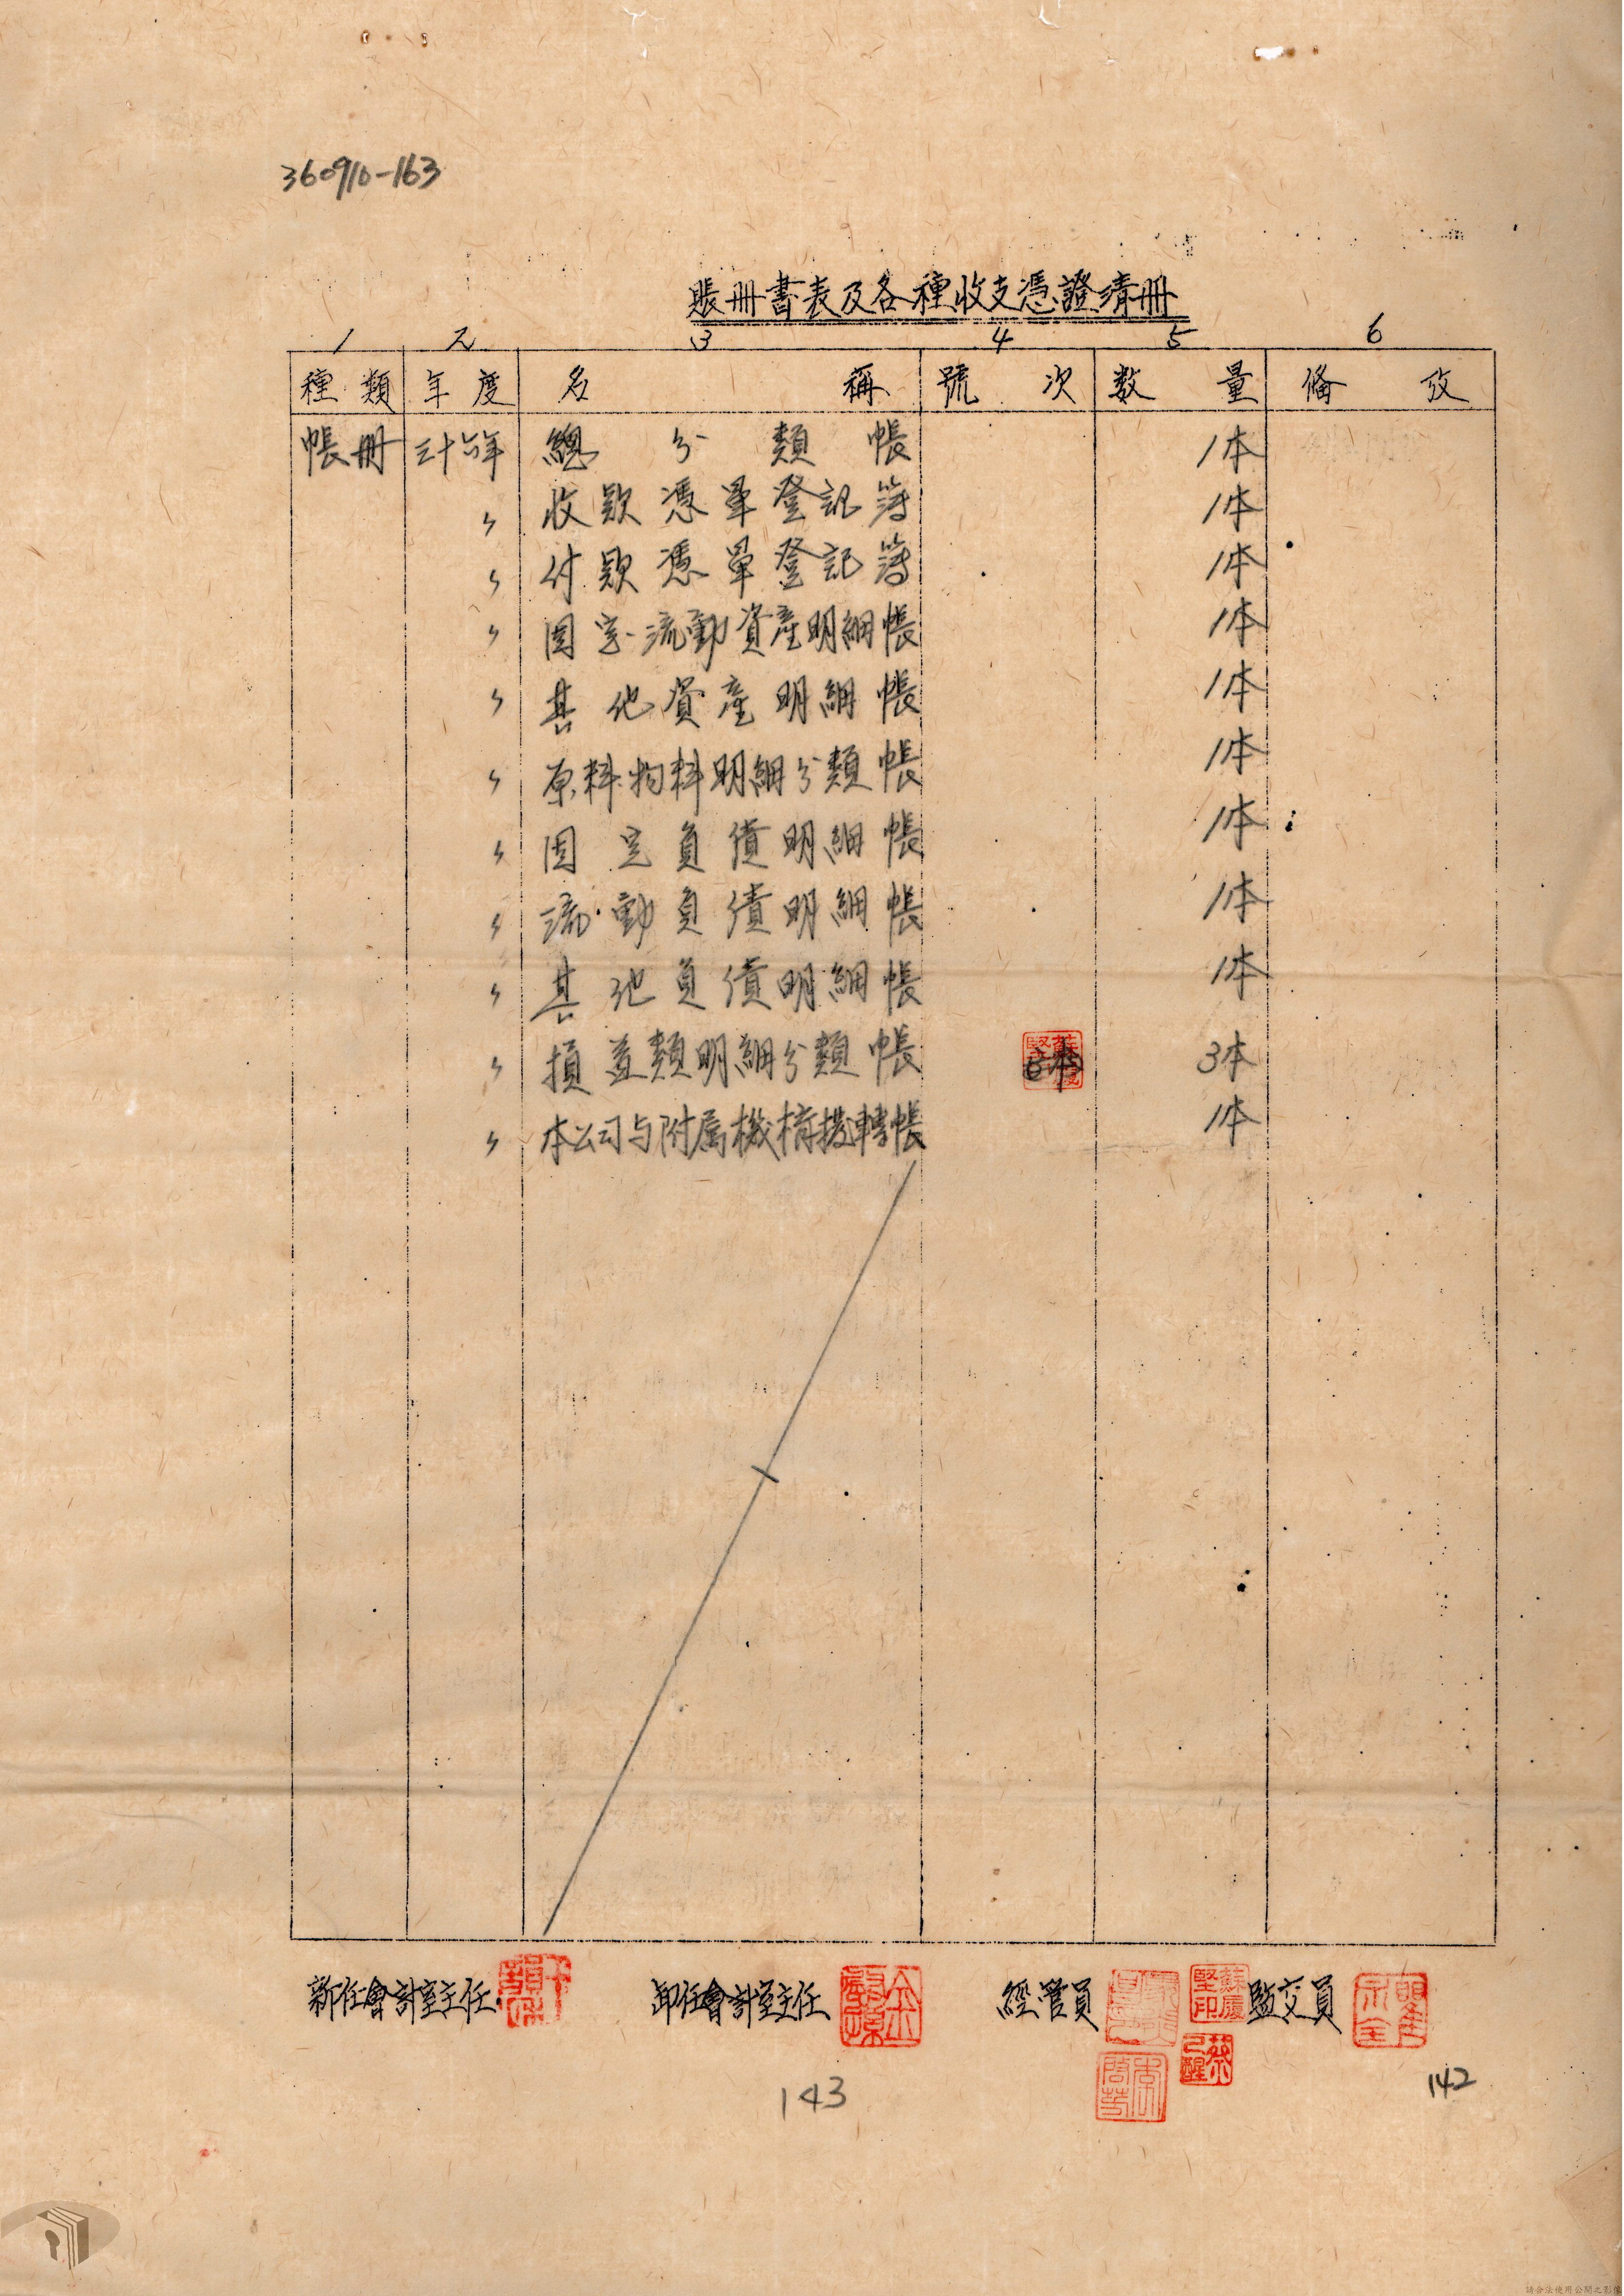 360910-163
賬冊書表及各種收支憑證清冊
1 2 3 4 5 6
種類 年度 名稱 號次 数量 備攷
帳冊 三十六年 總分類帳 1本
〃 收款憑單登記簿 1本
〃 付款憑單登記簿 1本
〃 固定流動資產明細帳 1本
〃 其他資產明細帳 1本
〃 原料物料明細分類帳 1本
〃 固定負債明細帳 1本
〃 流動負債明細帳 1本
〃 其他負債明細帳 1本
〃 損益類明細分類帳 3本
〃 本公司与附属機構撥轉帳 1本
新任會計室主任 卸任會計室主任 經管員 蘇慶堅印 監交員
蔡已醒
143
142
請合法使用公開之影像